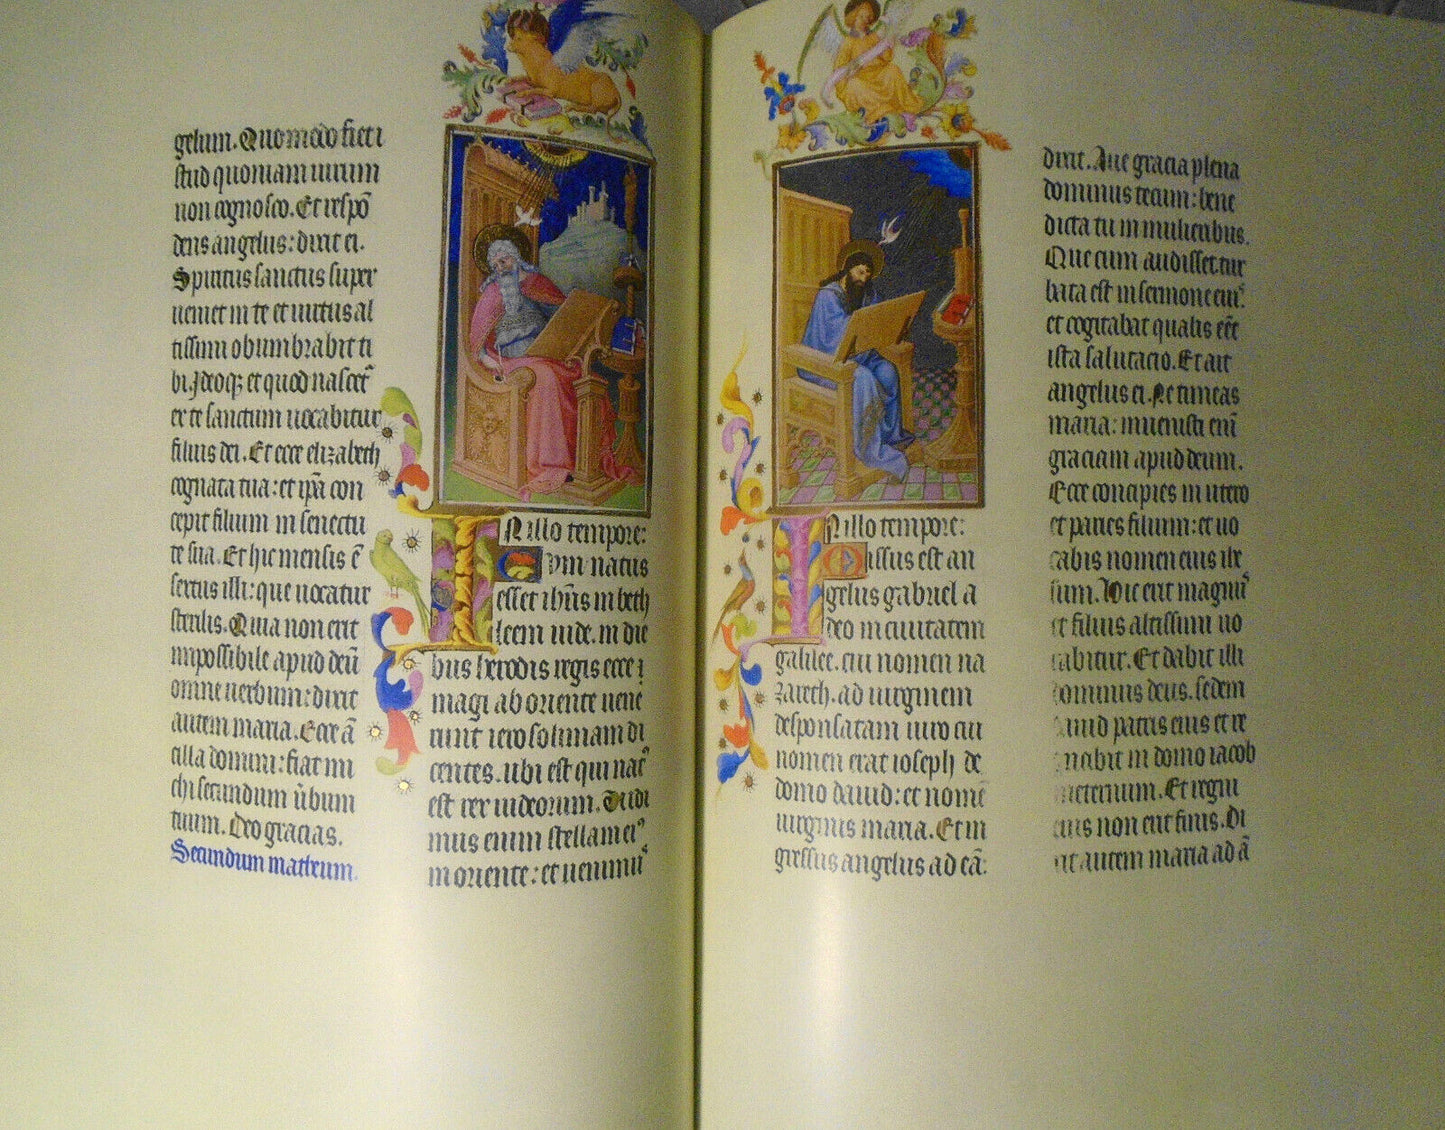 gelium. Quomodo fiet i
stud quoniam uirum
non cognosco. Et respō
dens angelus: dixit ei.
Spiritus sanctus super
ueniet in te et uirtus al
tissimi obumbrabit ti
bi. Ideoqꝫ et quod nascet᷑
ex te sanctum uocabitur
filius dei. Et ecce elizabeth
cognata tua: et ip̄a con
cepit filium in senectu
te sua. Et hic mensis ē
sextus illi: que uocatur
sterilis. Quia non erit
impossibile apud deū
omne uerbum: dixit
autem maria. Ecce ā
cilla domini: fiat mi
chi secundum ūbum
tuum. Deo gracias.
Secundum matheum.
IN illo tempore:
Cum natus
esset ihūs in beth
leem iude. in die
bus herodis regis ecce
magi ab oriente uene
runt ierosolimam di
centes. ubi est qui nat᷒
est rex iudeorum. Uidi
mus enim stellam ei᷒
in oriente: et uenim᷒
IN illo tempore:
Missus est an
gelus gabriel a
deo in ciuitatem
galilee. cui nomen na
zareth. ad uirginem
desponsatam uiro cui
nomen erat ioseph de
domo dauid: et nomē
uirginis maria. Et in
gressus angelus ad eā:
dixit. Aue gracia plena
dominus tecum: bene
dicta tu in mulieribus.
Que cum audisset. tur
bata est in sermone ei᷒:
et cogitabat qualis eēt
ista salutacio. Et ait
angelus ei. Ne timeas
maria: inuenisti eni᷒
graciam apud deum.
Ecce concipies in utero
et paries filium: et uo
cabis nomen eius ihe
sum. Hic erit magnu᷒
et filius altissimi uo
cabitur. Et dabit illi
dominus deus. sedem
dauid patris eius et re
gnabit in domo iacob
in eternum. Et regni
eius non erit finis. Di
xit autem maria ad ā